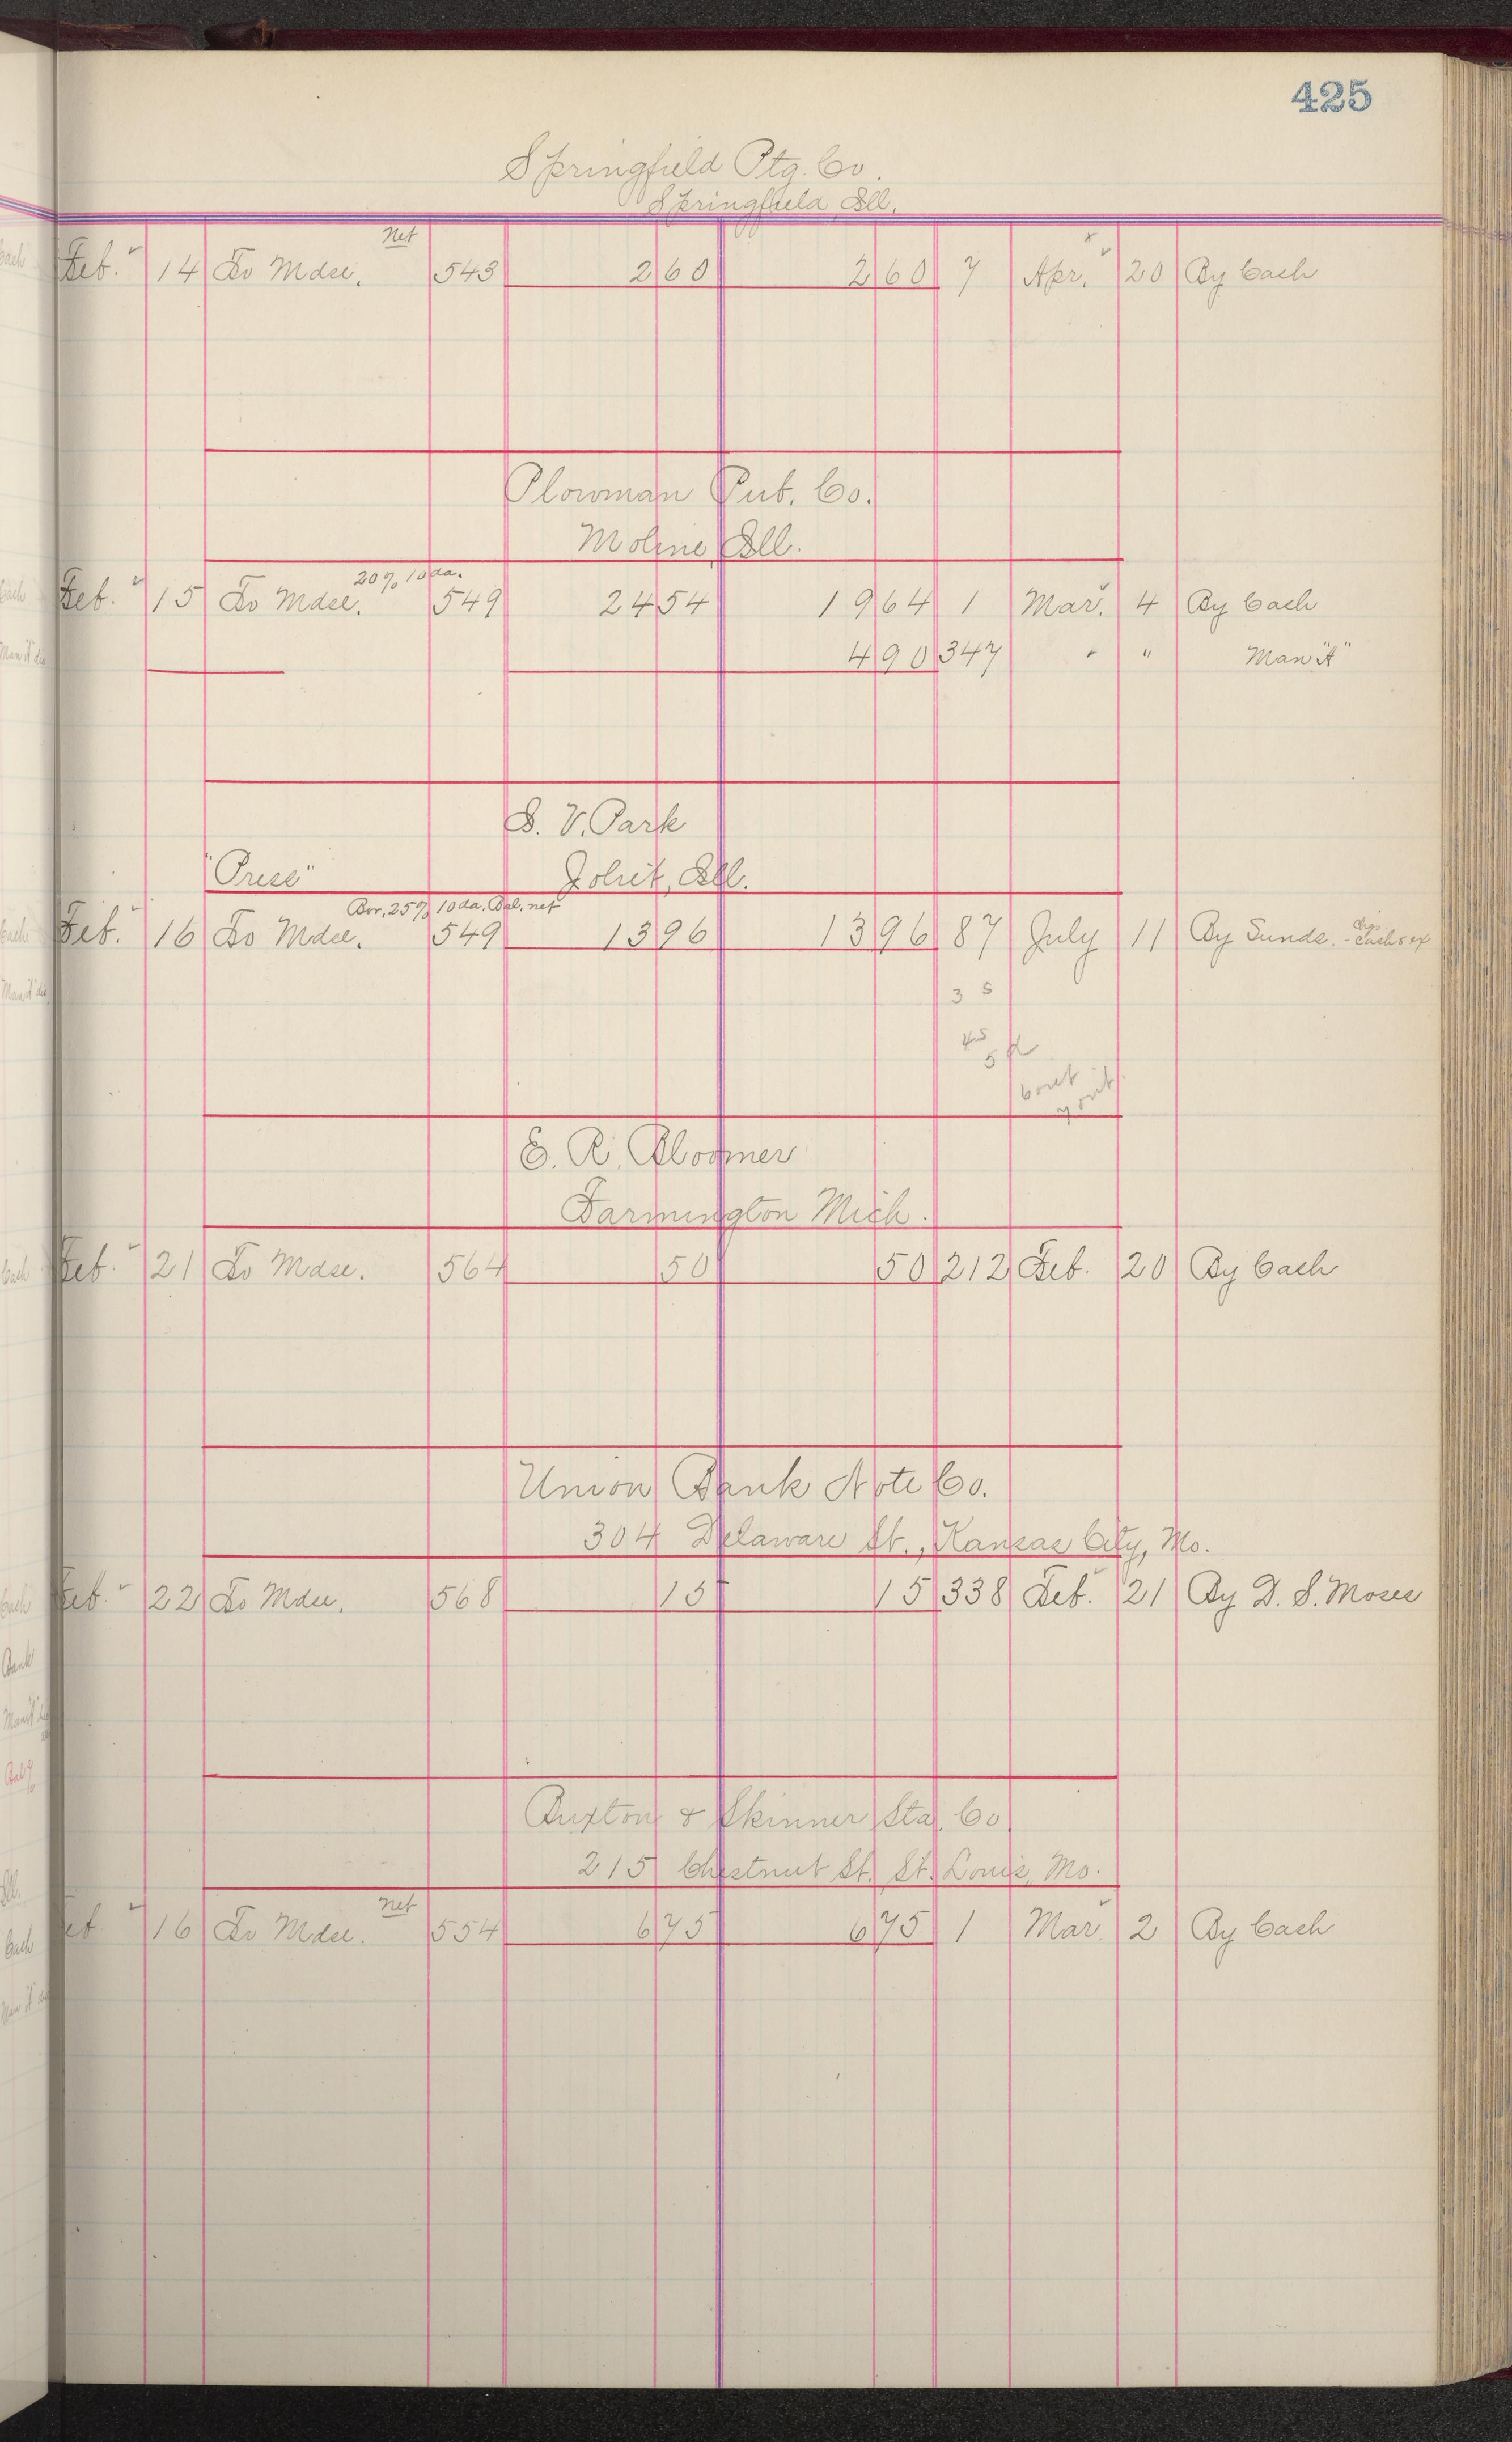 425
Springfield Ptg. Co.
Springfield Ill.
Net
Feb. 14 To Mdse. 543 2 60 2 60 7 Apr. 20 By Cash
Plowman Pub. Co.
Moline, Ill.
20% 10 da.
Feb. 15 To Mdse. 549 24 54 19 64 1 Mar. 4 By Cash
4 90 347 " " Man "A"
S. V. Park
"Press" Joliet, Ill.
Bor. 25% 10 da. Bal. net
Feb. 16 To Mdse. 549 13 96 13 96 87 July 11 By Sunds. - Cash & ex
3 5
45
5
E. R. Bloomer
Farmington Mich.
Feb. 21 To Mdse. 564 50 50 212 Feb. 20 By Cash
Union Bank Note Co.
304 Delaware St., Kansas City, Mo.
Feb. 22 To Mdse. 568 15 15 338 Feb. 21 By D. S. Moses
Buxton & Skinner Sta. Co.
215 Chestnut St. St. Louis, Mo.
net
Feb 16 To Mdse. 554 6 75 6 75 1 Mar. 2 By Cash